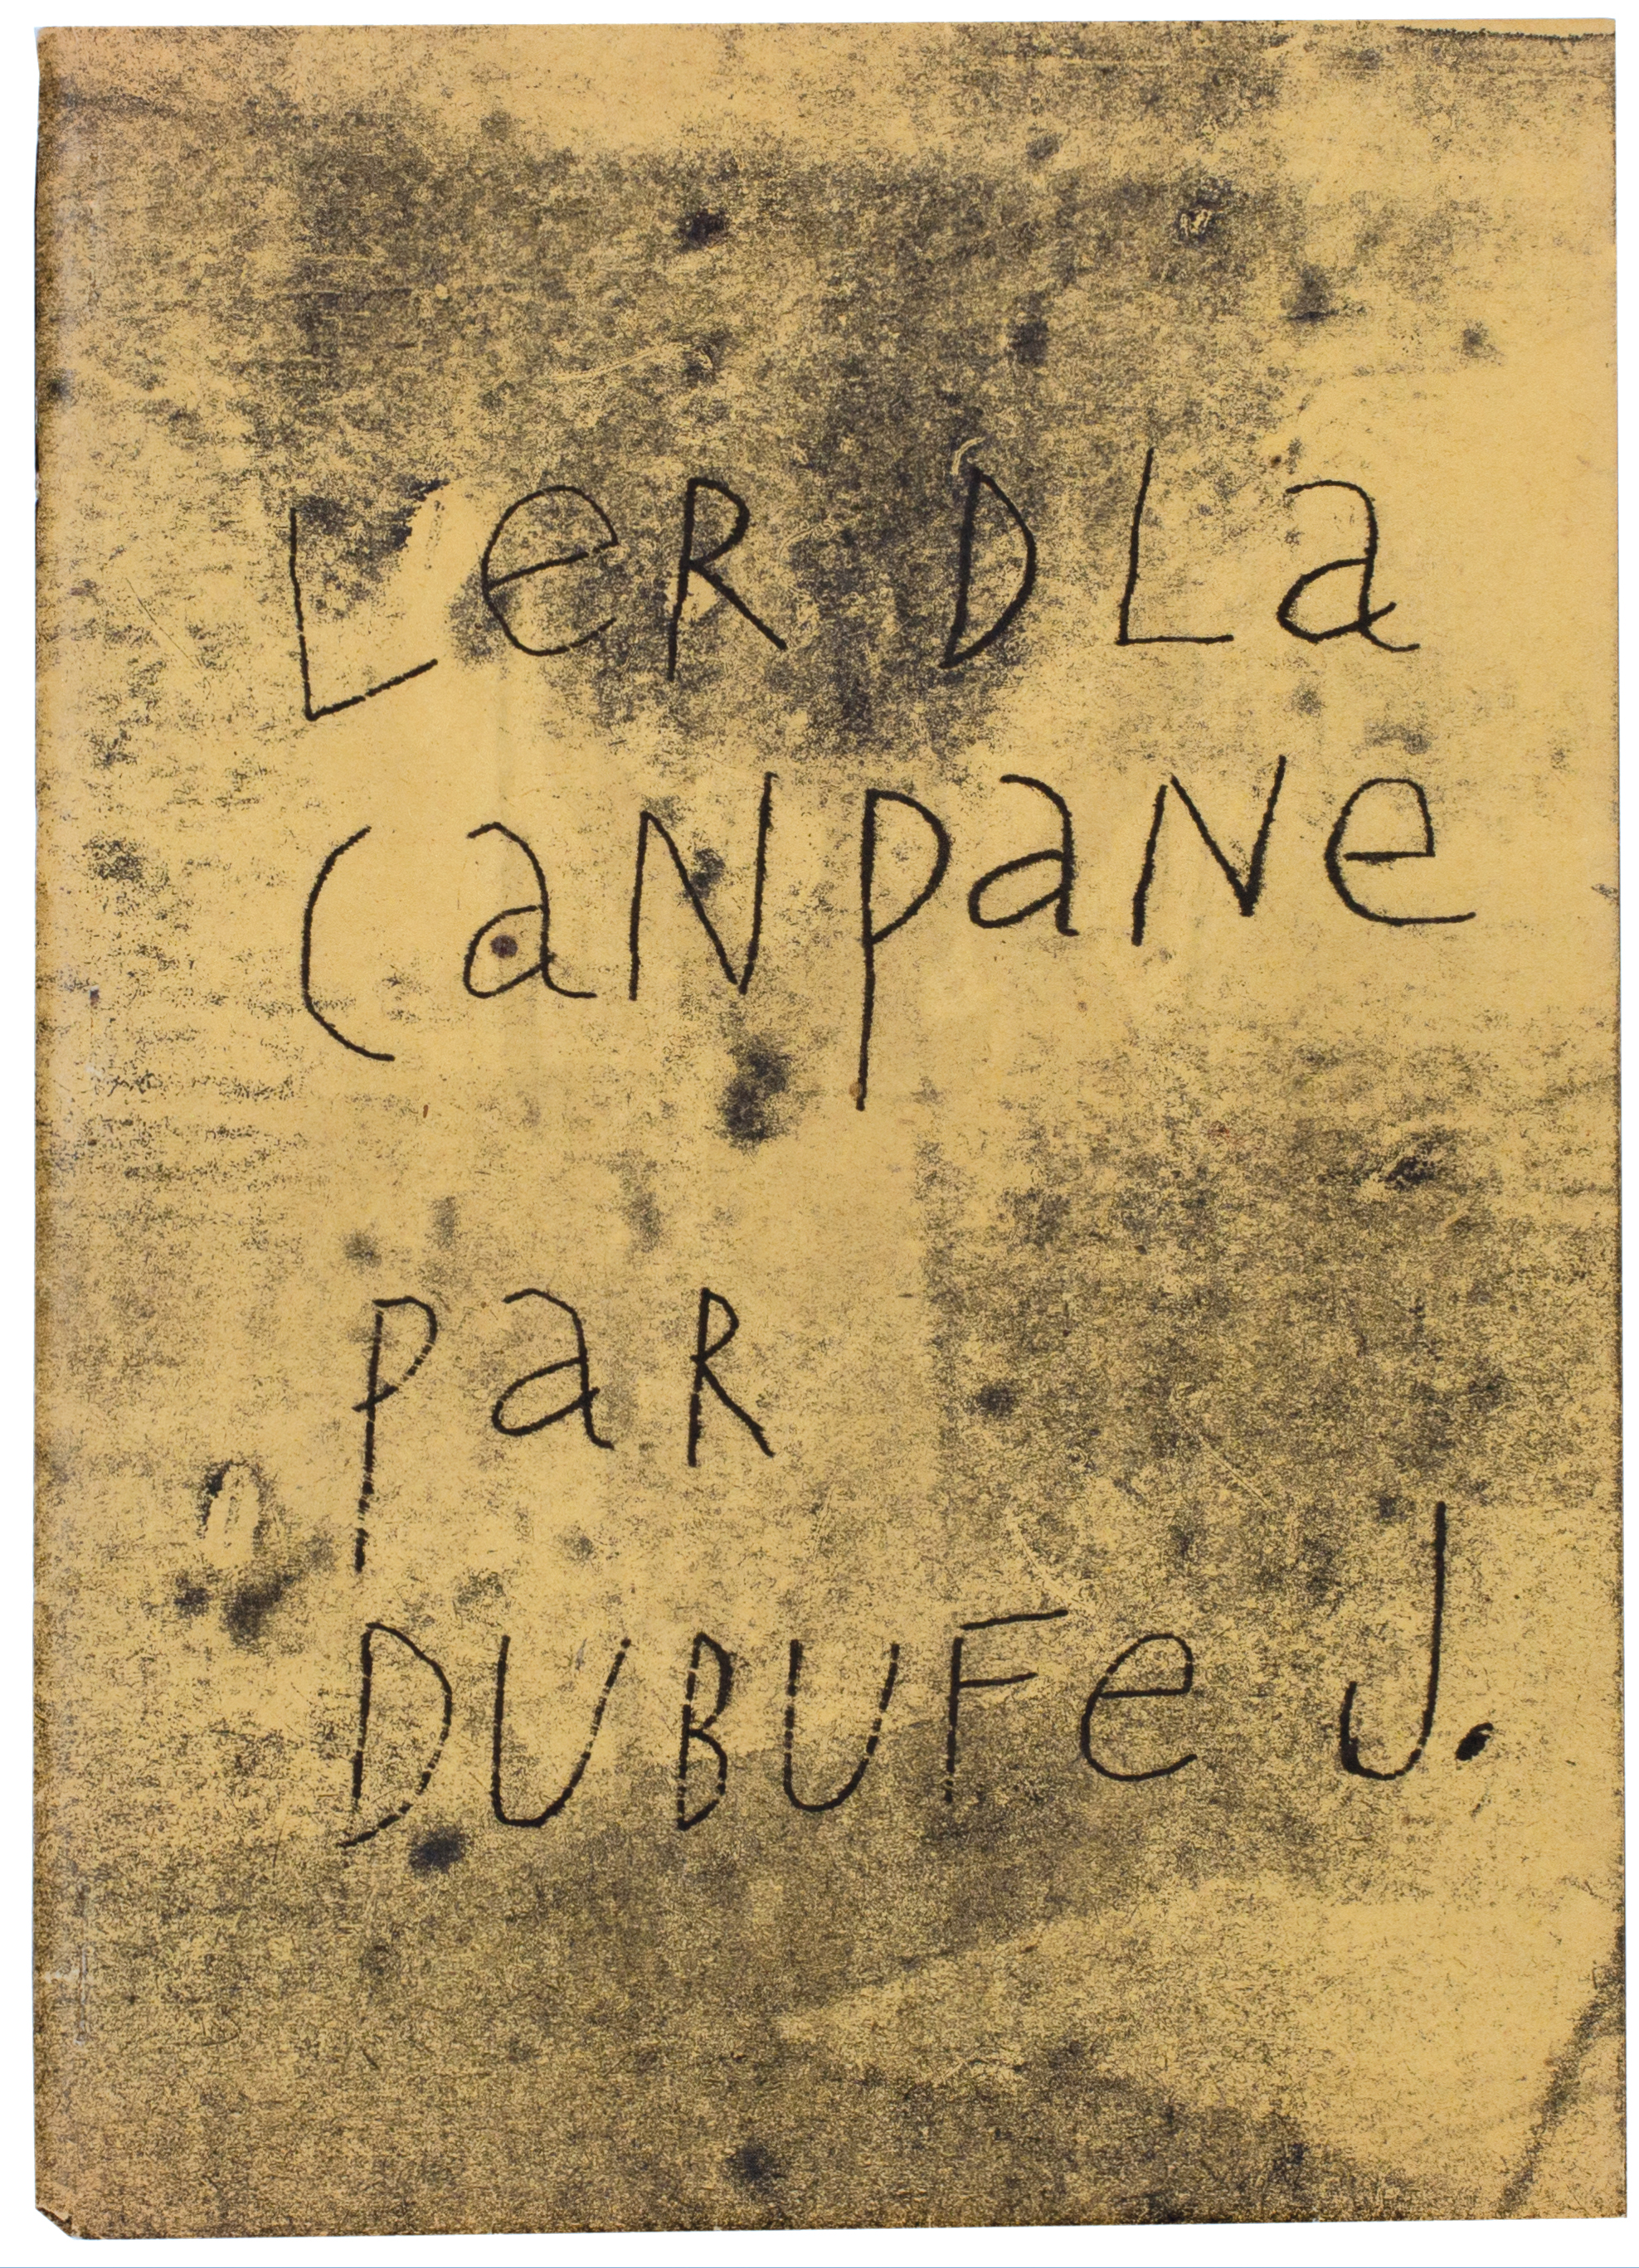 LeR D La
CaNpaNe
paR
DUBUFe J.